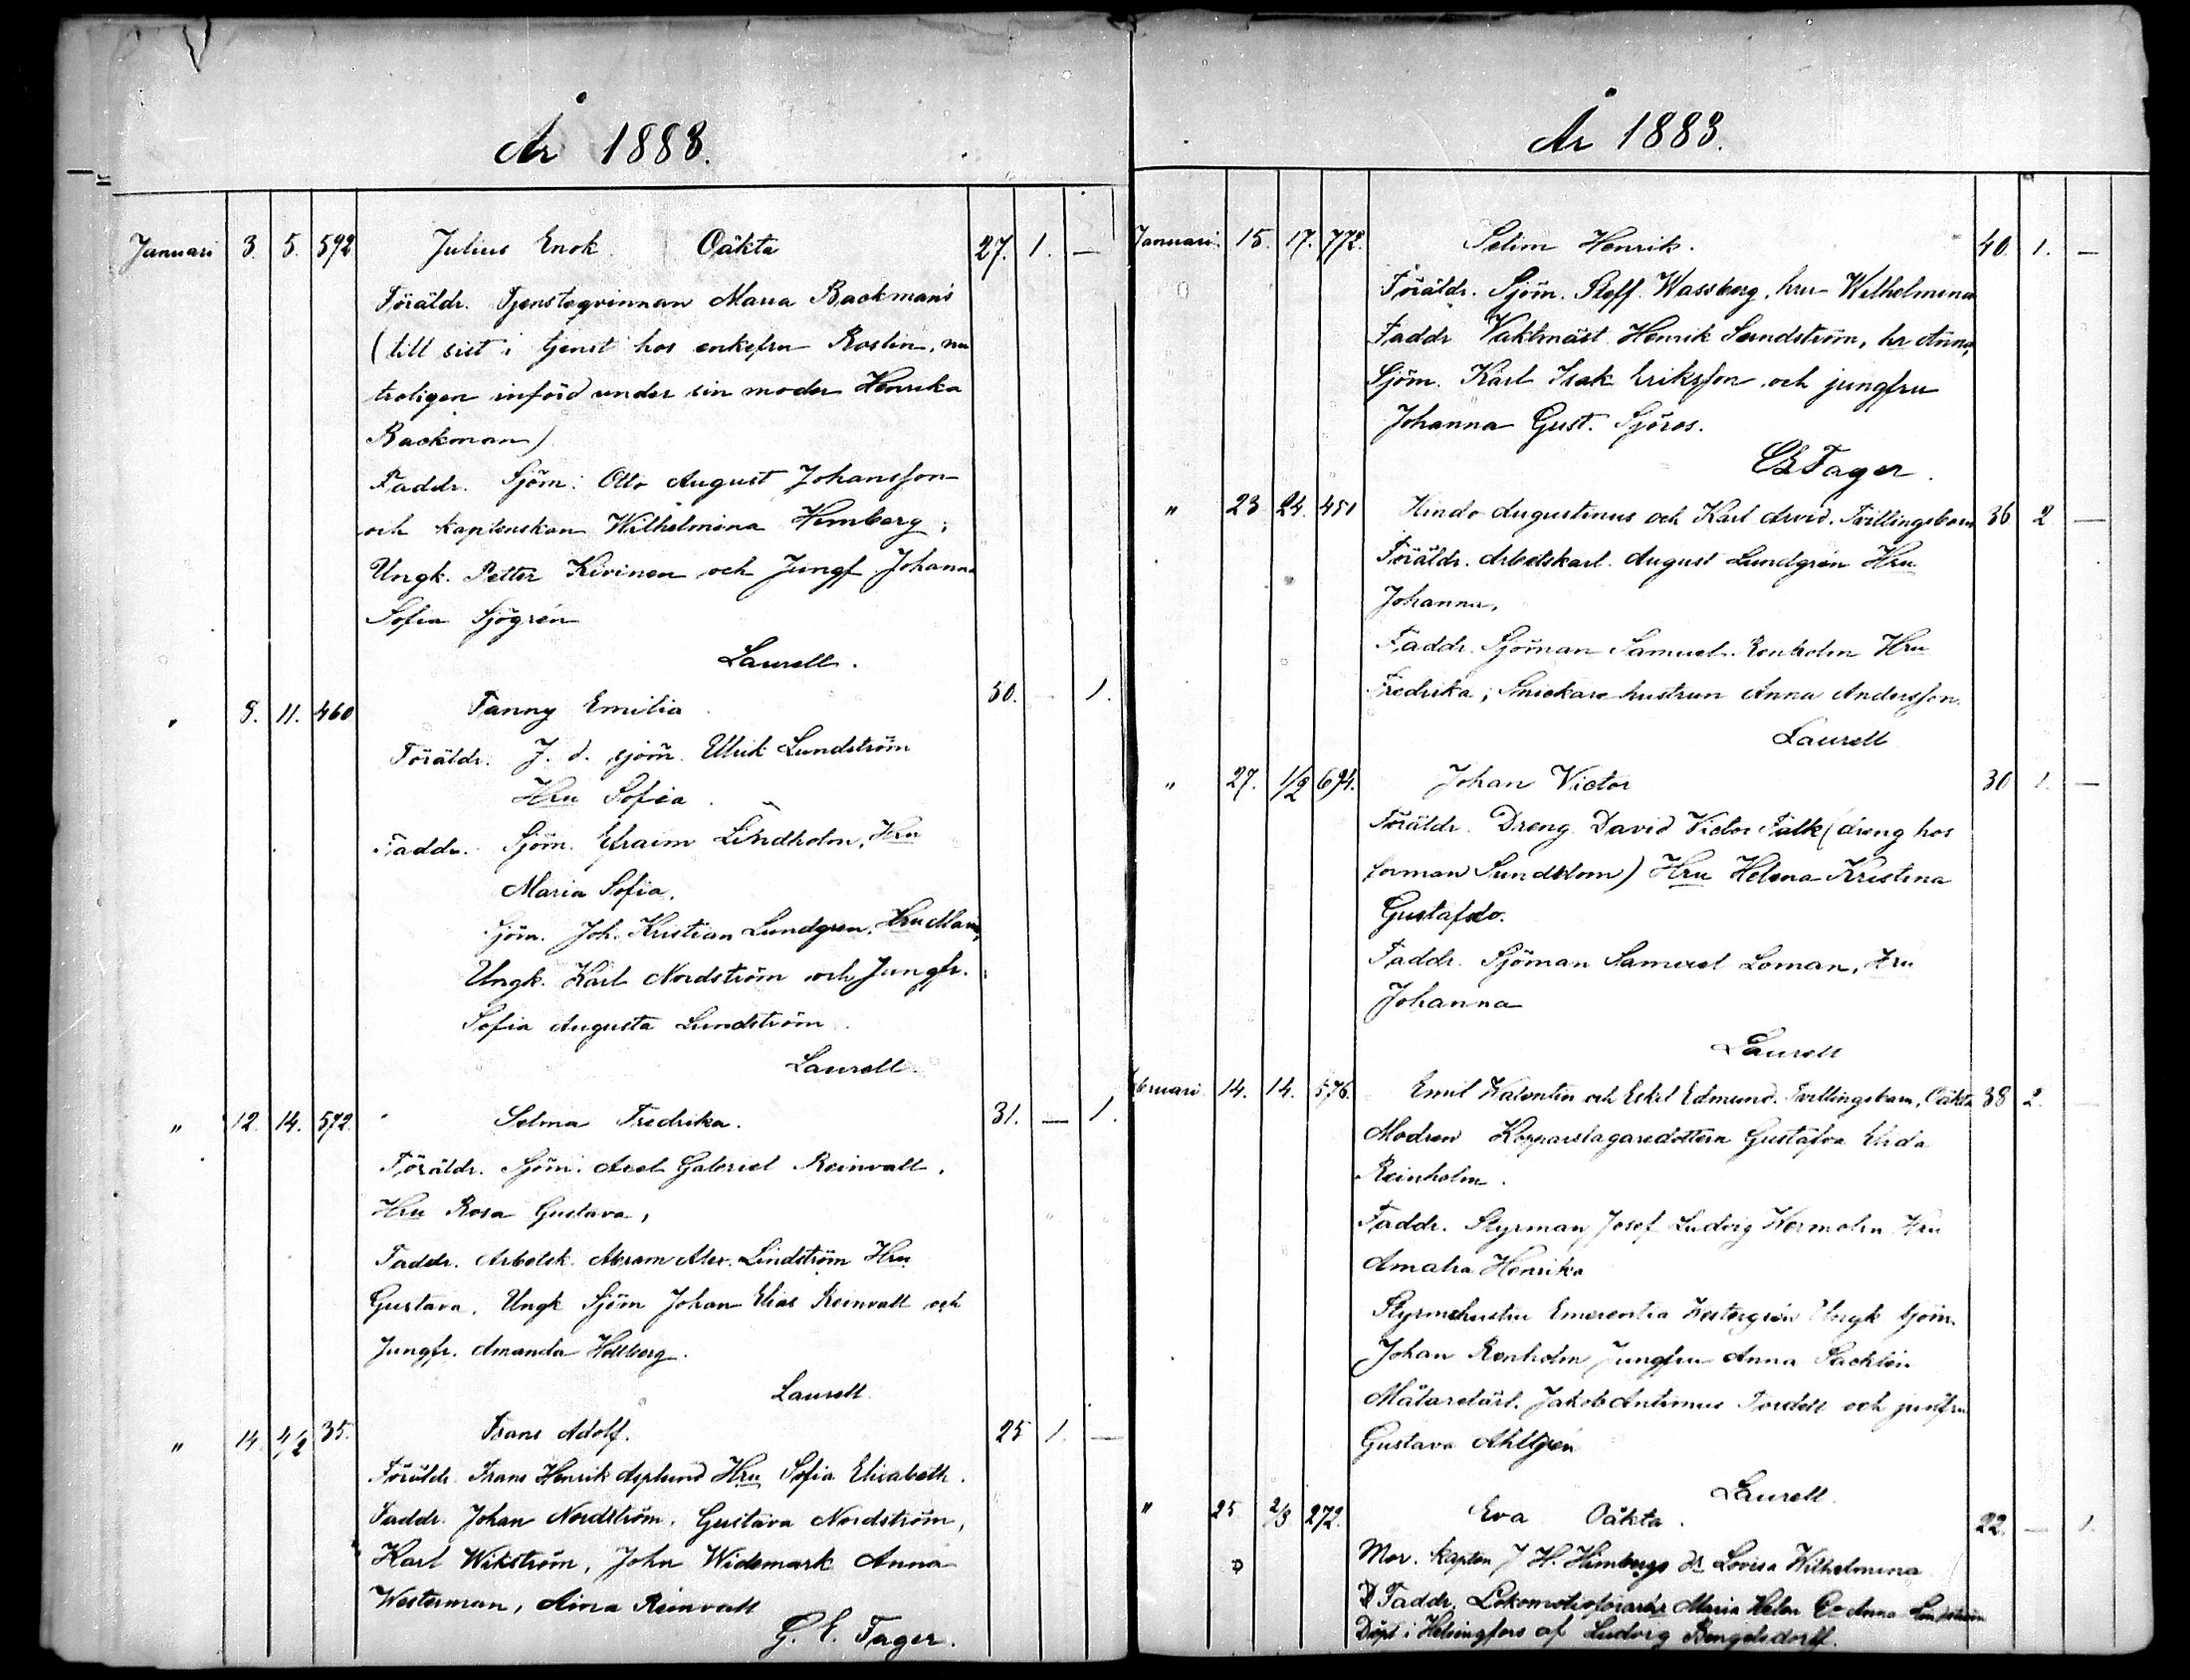 År 1883.
Januari 3. 5. 592 Julius Enok. Oäkta 27. 1. —
Föräldr. Tjensteqvinnan Maria Backmans
(till sist i tjenst hos enkefru Roslin, nu
troligen införd under sin moder Henrika
Backman)
Faddr. Sjöm. Otto August Johansson
och kaptenskan Wilhelmina Himberg;
Ungk. Petter Kivinen och Jungf. Johanna
Sofia Sjögrén
Laurell.
" 8. 11. 460 Fanny Emilia. 50. — 1.
Föräldr. J. d. sjöm. Ulrik Lundström
Hru Sofia.
Faddr. Sjöm. Efraim Lindholm, Hru
Maria Sofia,
Sjöm. Joh. Kristian Lundgren, Hru Maria,
Ungk. Karl Nordström och Jungfr.
Sofia Augusta Lundström.
Laurell
" 12. 14. 572. Selma Fredrika. 31. — 1.
Föräldr. Sjöm. Axel Gabriel Reinvall,
Hru Rosa Gustava,
Faddr. Arbetsk. Abram Alex. Lindström Hru
Gustava, Ungk Sjöm Johan Elias Reinvall och
Jungfr. Amanda Hellberg.
Laurell
" 14. 4/2 35. Frans Adolf. 25 1. —
Föräldr. Frans Henrik Asplund Hru Sofia Elisabeth.
Faddr. Johan Nordström, Gustava Nordström,
Karl Wikström, John Widemark Anna
Westerman, Aina Reinvall
G. E. Fager.
År 1883.
Januari 15. 17. 772. Selim Henrik. 40. 1. —
Föräldr. Sjöm. Steff. Wassberg, hru Wilhelmina
Faddr Vaktmäst. Henrik Sundström, hr Anna,
Sjöm. Karl Isak Eriksson och jungfru
Johanna Gust. Sjöros.
Fager.
" 23 24. 451 Hindo Augustinus och Karl Arvid. Tvillingsbarn 36 2 —
Föräldr. Arbetskarl. August Lundgrén Hru
Johanna,
Faddr. Sjöman Samuel Renholm Hru
Fredrika; Snickare hustrun Anna Andersson.
Laurell
" 27. 1/2 694. Johan Victor 30 1. —
Föräldr. Dreng David Victor Falk (dreng hos
forman Sundblom) Hru Helena Kristina
Gustafsdr.
Faddr. Sjöman Samuel Loman, Hru
Johanna
Laurell
Februari 14. 14. 576. Emil Walentin och Eskil Edmund. Tvillingsbarn, Oäkta 38 2. —
Modren Kopparslagaredottern Gustafva Elida
Reinholm.
Faddr. Styrman Josef Ludvig Hru
Amalia Henrika
Styrmshustru Emerentia Westergrén Ungk sjöm.
Johan Renholm Jungfru Anna
Målarelärl. Jakob Antimus Tordell och jungfru
Gustava Ahlgrén
Laurell.
" 25 2/3 272. Eva Oäkta. 22. — 1.
Mor. Kapten J H. Himbergs dr Lovisa Wilhelmina
Faddr. Lokomotivförarhr Maria Anna Lindström
Döpt i Helsingfors af Ludvig Bengelsdorff.